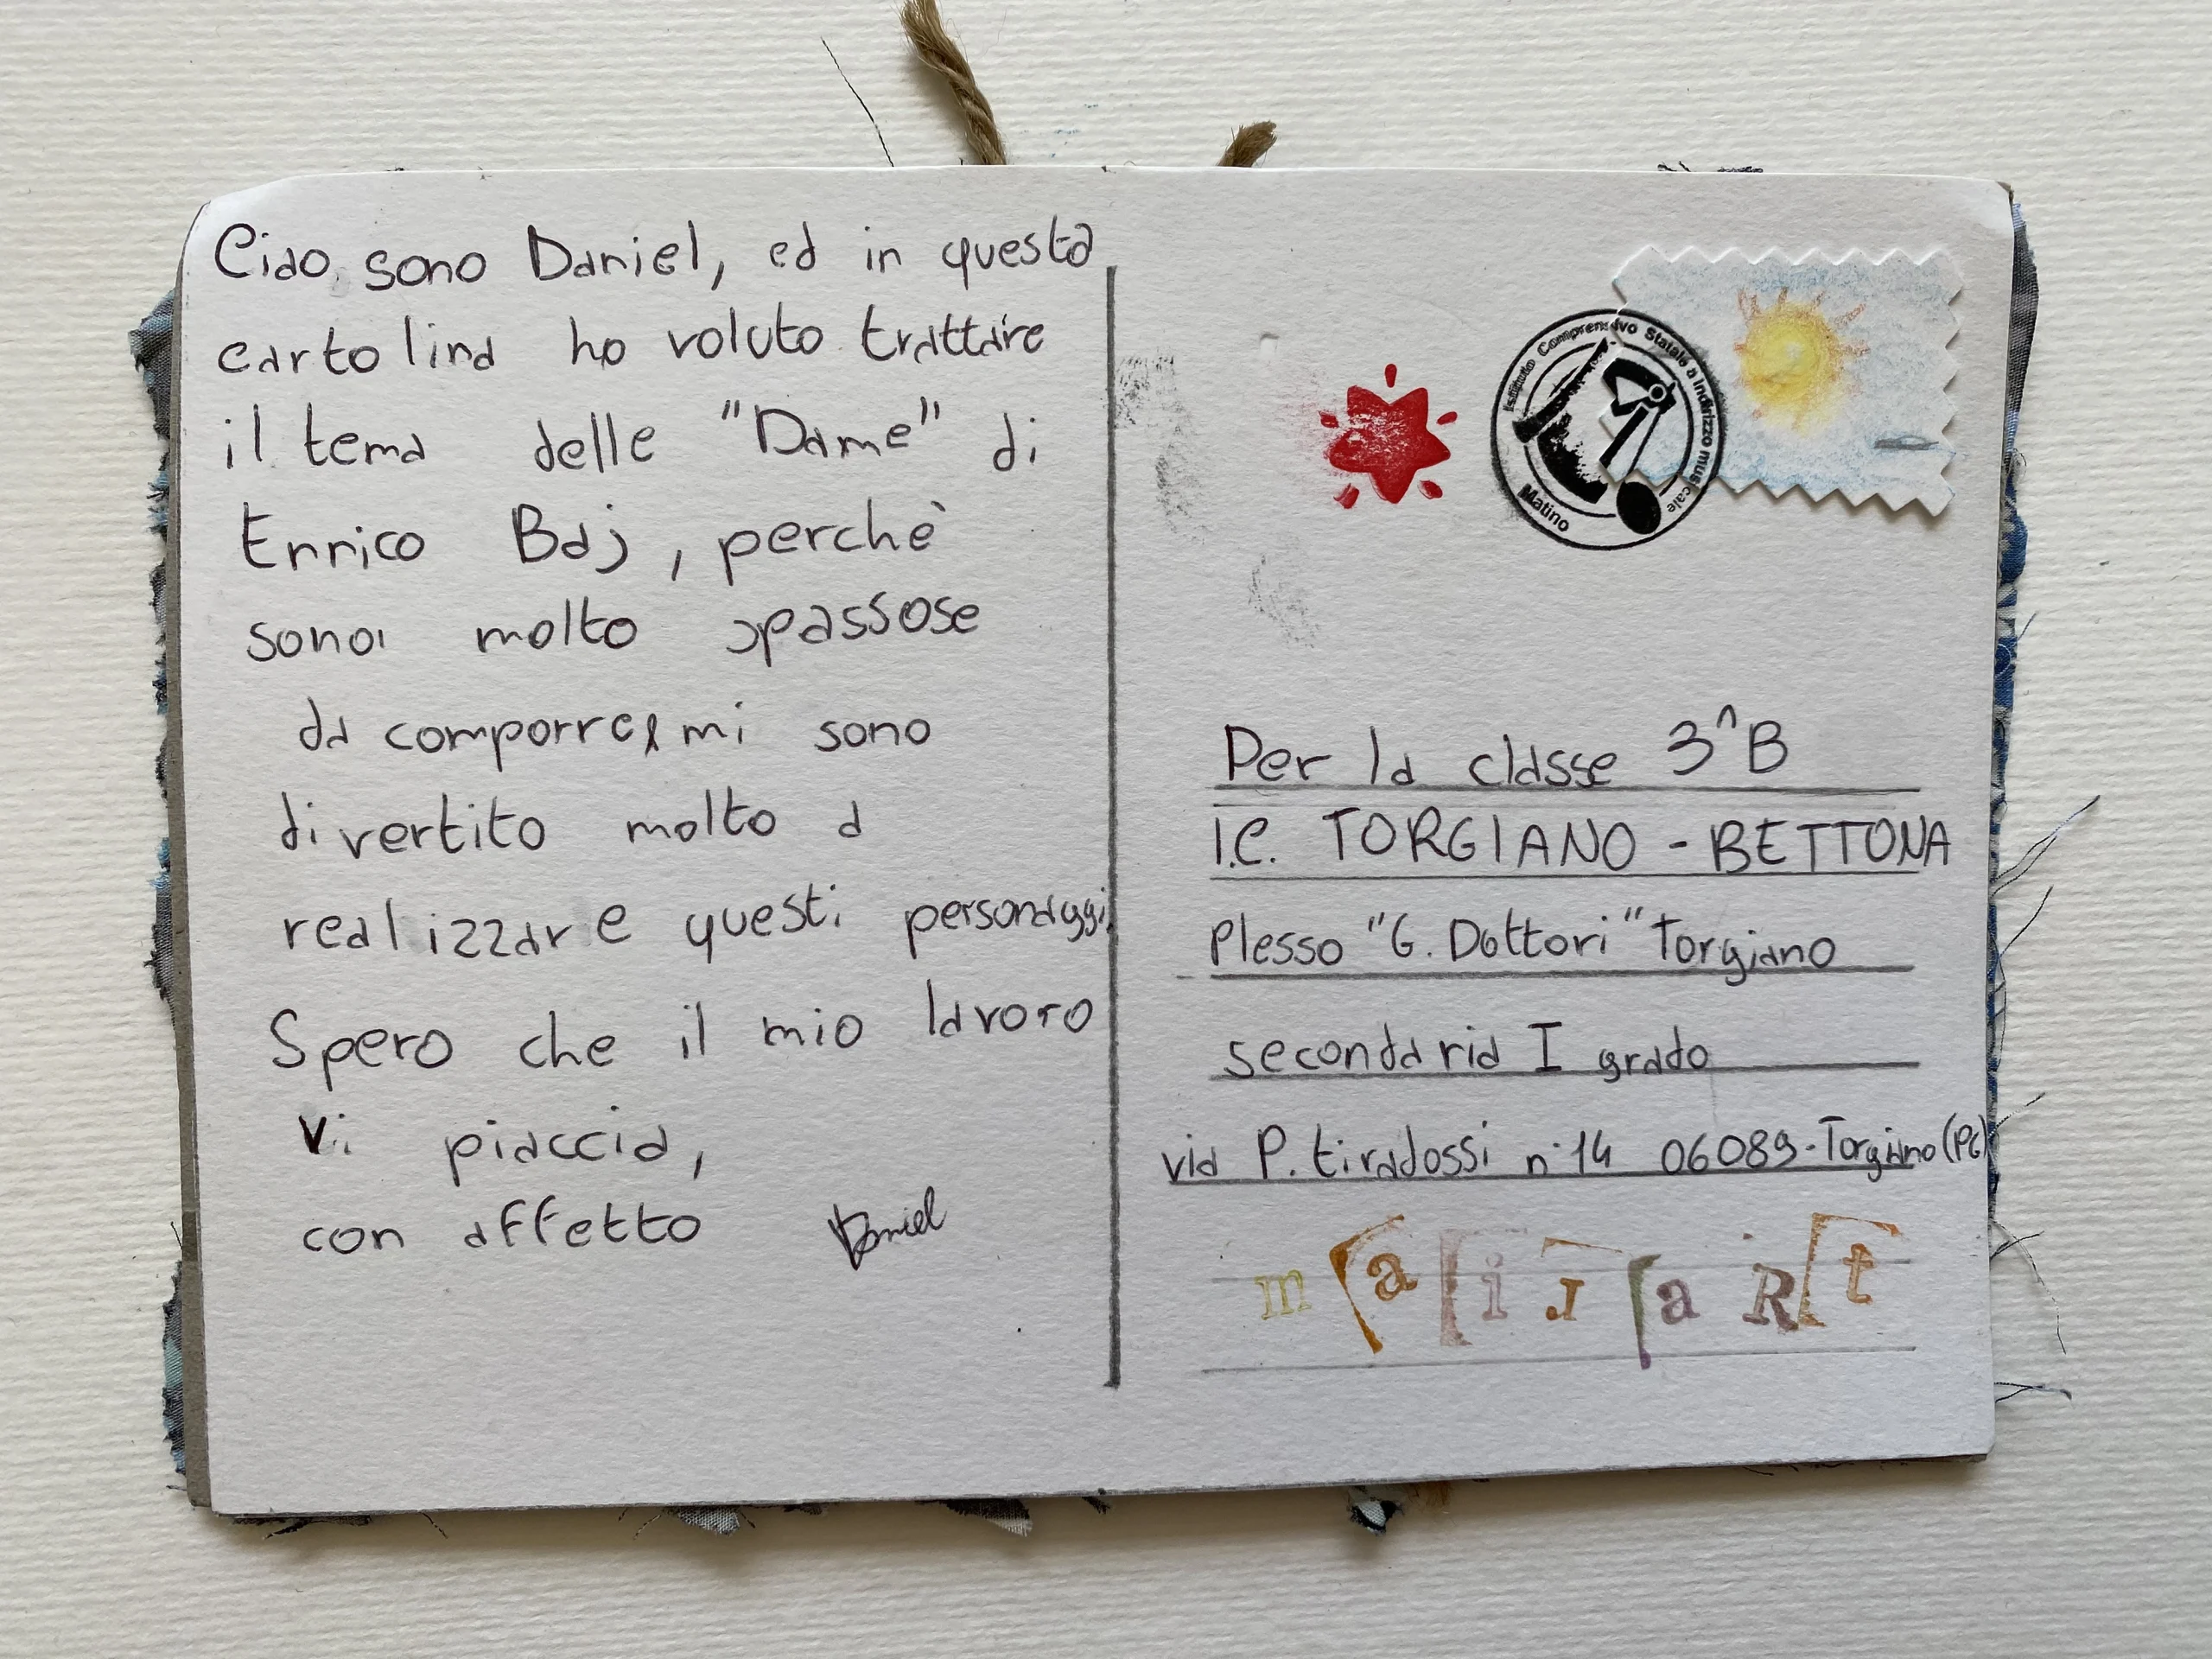 Ciao, sono Daniel, ed in questa
cartolina ho voluto trattare
il tema delle "Dame" di
Enrico Baj, perchè
sono molto spassose
da comporre mi sono
divertito molto a
realizzare questi personaggi
Spero che il mio lavoro
vi piaccia,
con affetto Daniel
Istituto Comprensivo Statale a indirizzo musicale
Matino
Per la classe 3^B
I.C. TORGIANO - BETTONA
Plesso "G. Dottori" Torgiano
secondaria I grado
via P. tiradossi n°14 06089-Torgiano (PG)
mailaRt